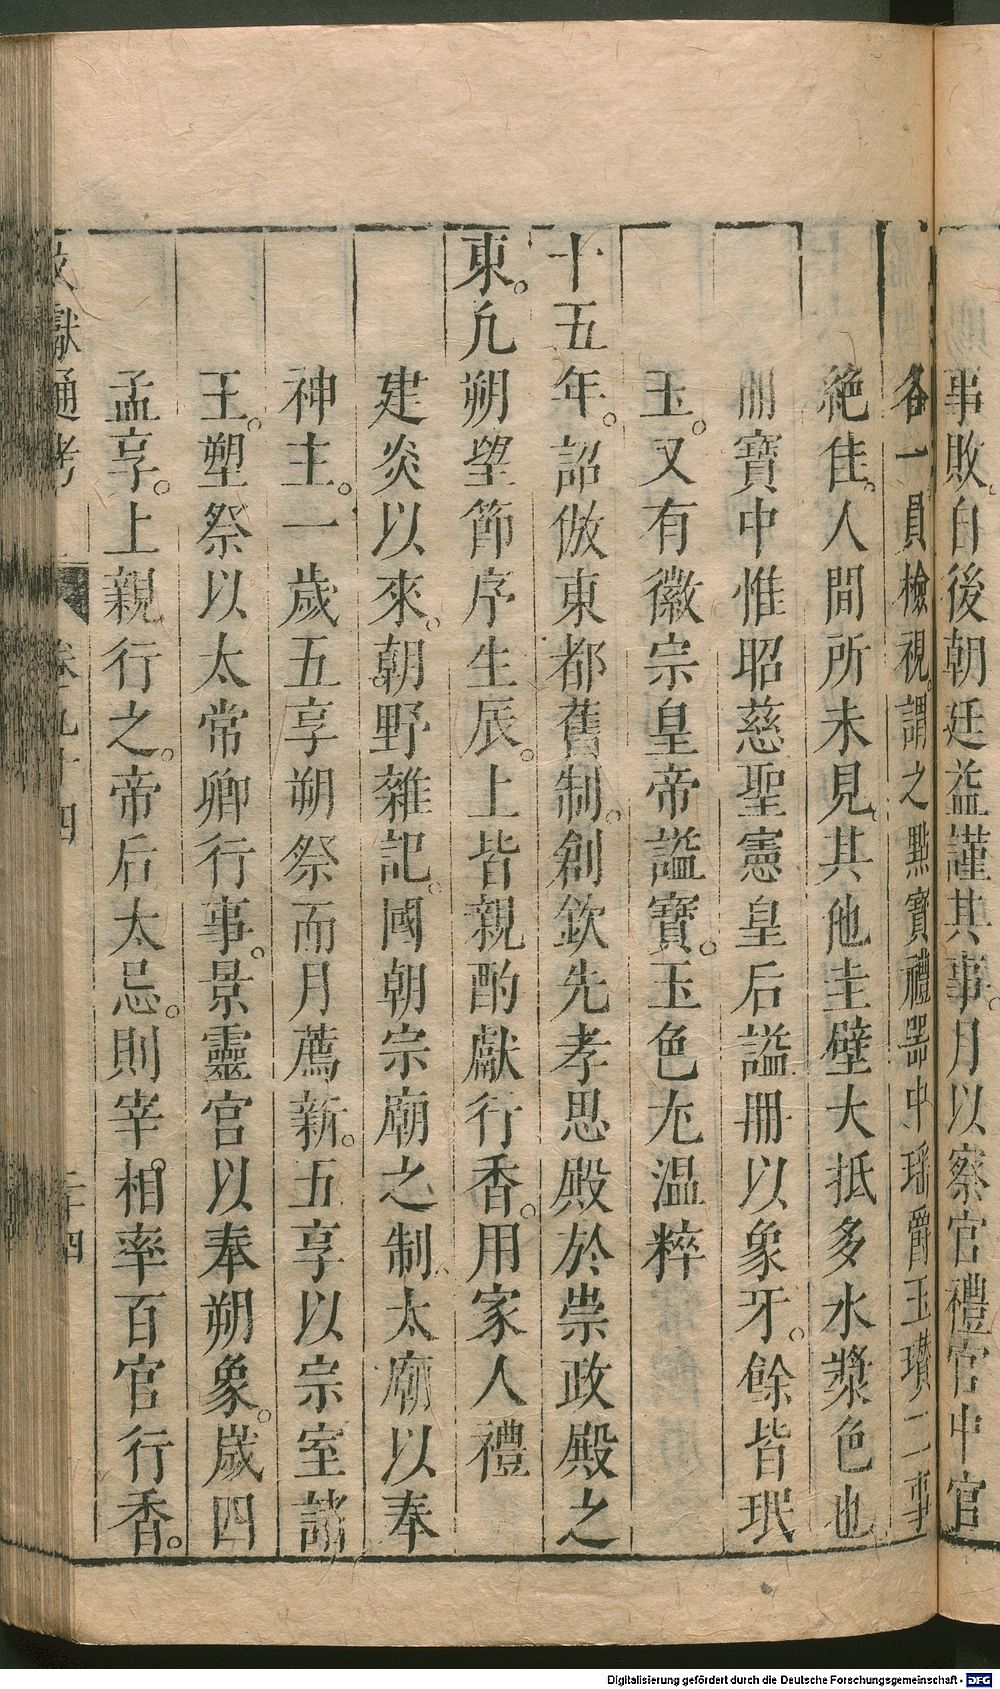 事敗。自後朝廷益謹其事。月以察官禮官中官
各一員檢視。謂之點寶禮器中瑶爵玉瓚二事
絶佳。人間所未見。其他圭璧大抵多水漿色也
冊寶中惟昭慈聖憲皇后謚冊以象牙。餘皆珉
玉。又有徽宗皇帝謚寶。玉色尢温粹
十五年。詔倣東都舊制。創欽先孝思殿於崇政殿之
東。凡朔望節序生辰。上皆親酌獻行香。用家人禮
建炎以來。朝野雜記。國朝宗廟之制。太廟以奉
神主。一歲五享朔祭而月薦新。五享以宗室諸
王。朔祭以太常卿行事。景靈宮以奉塑象。歲四
孟享。上親行之。帝后太忌。則宰相率百官行香。
文獻通考 卷九十四 二十四
Digitalisierung gefördert durch die Deutsche Forschungsgemeinschaft - DFG